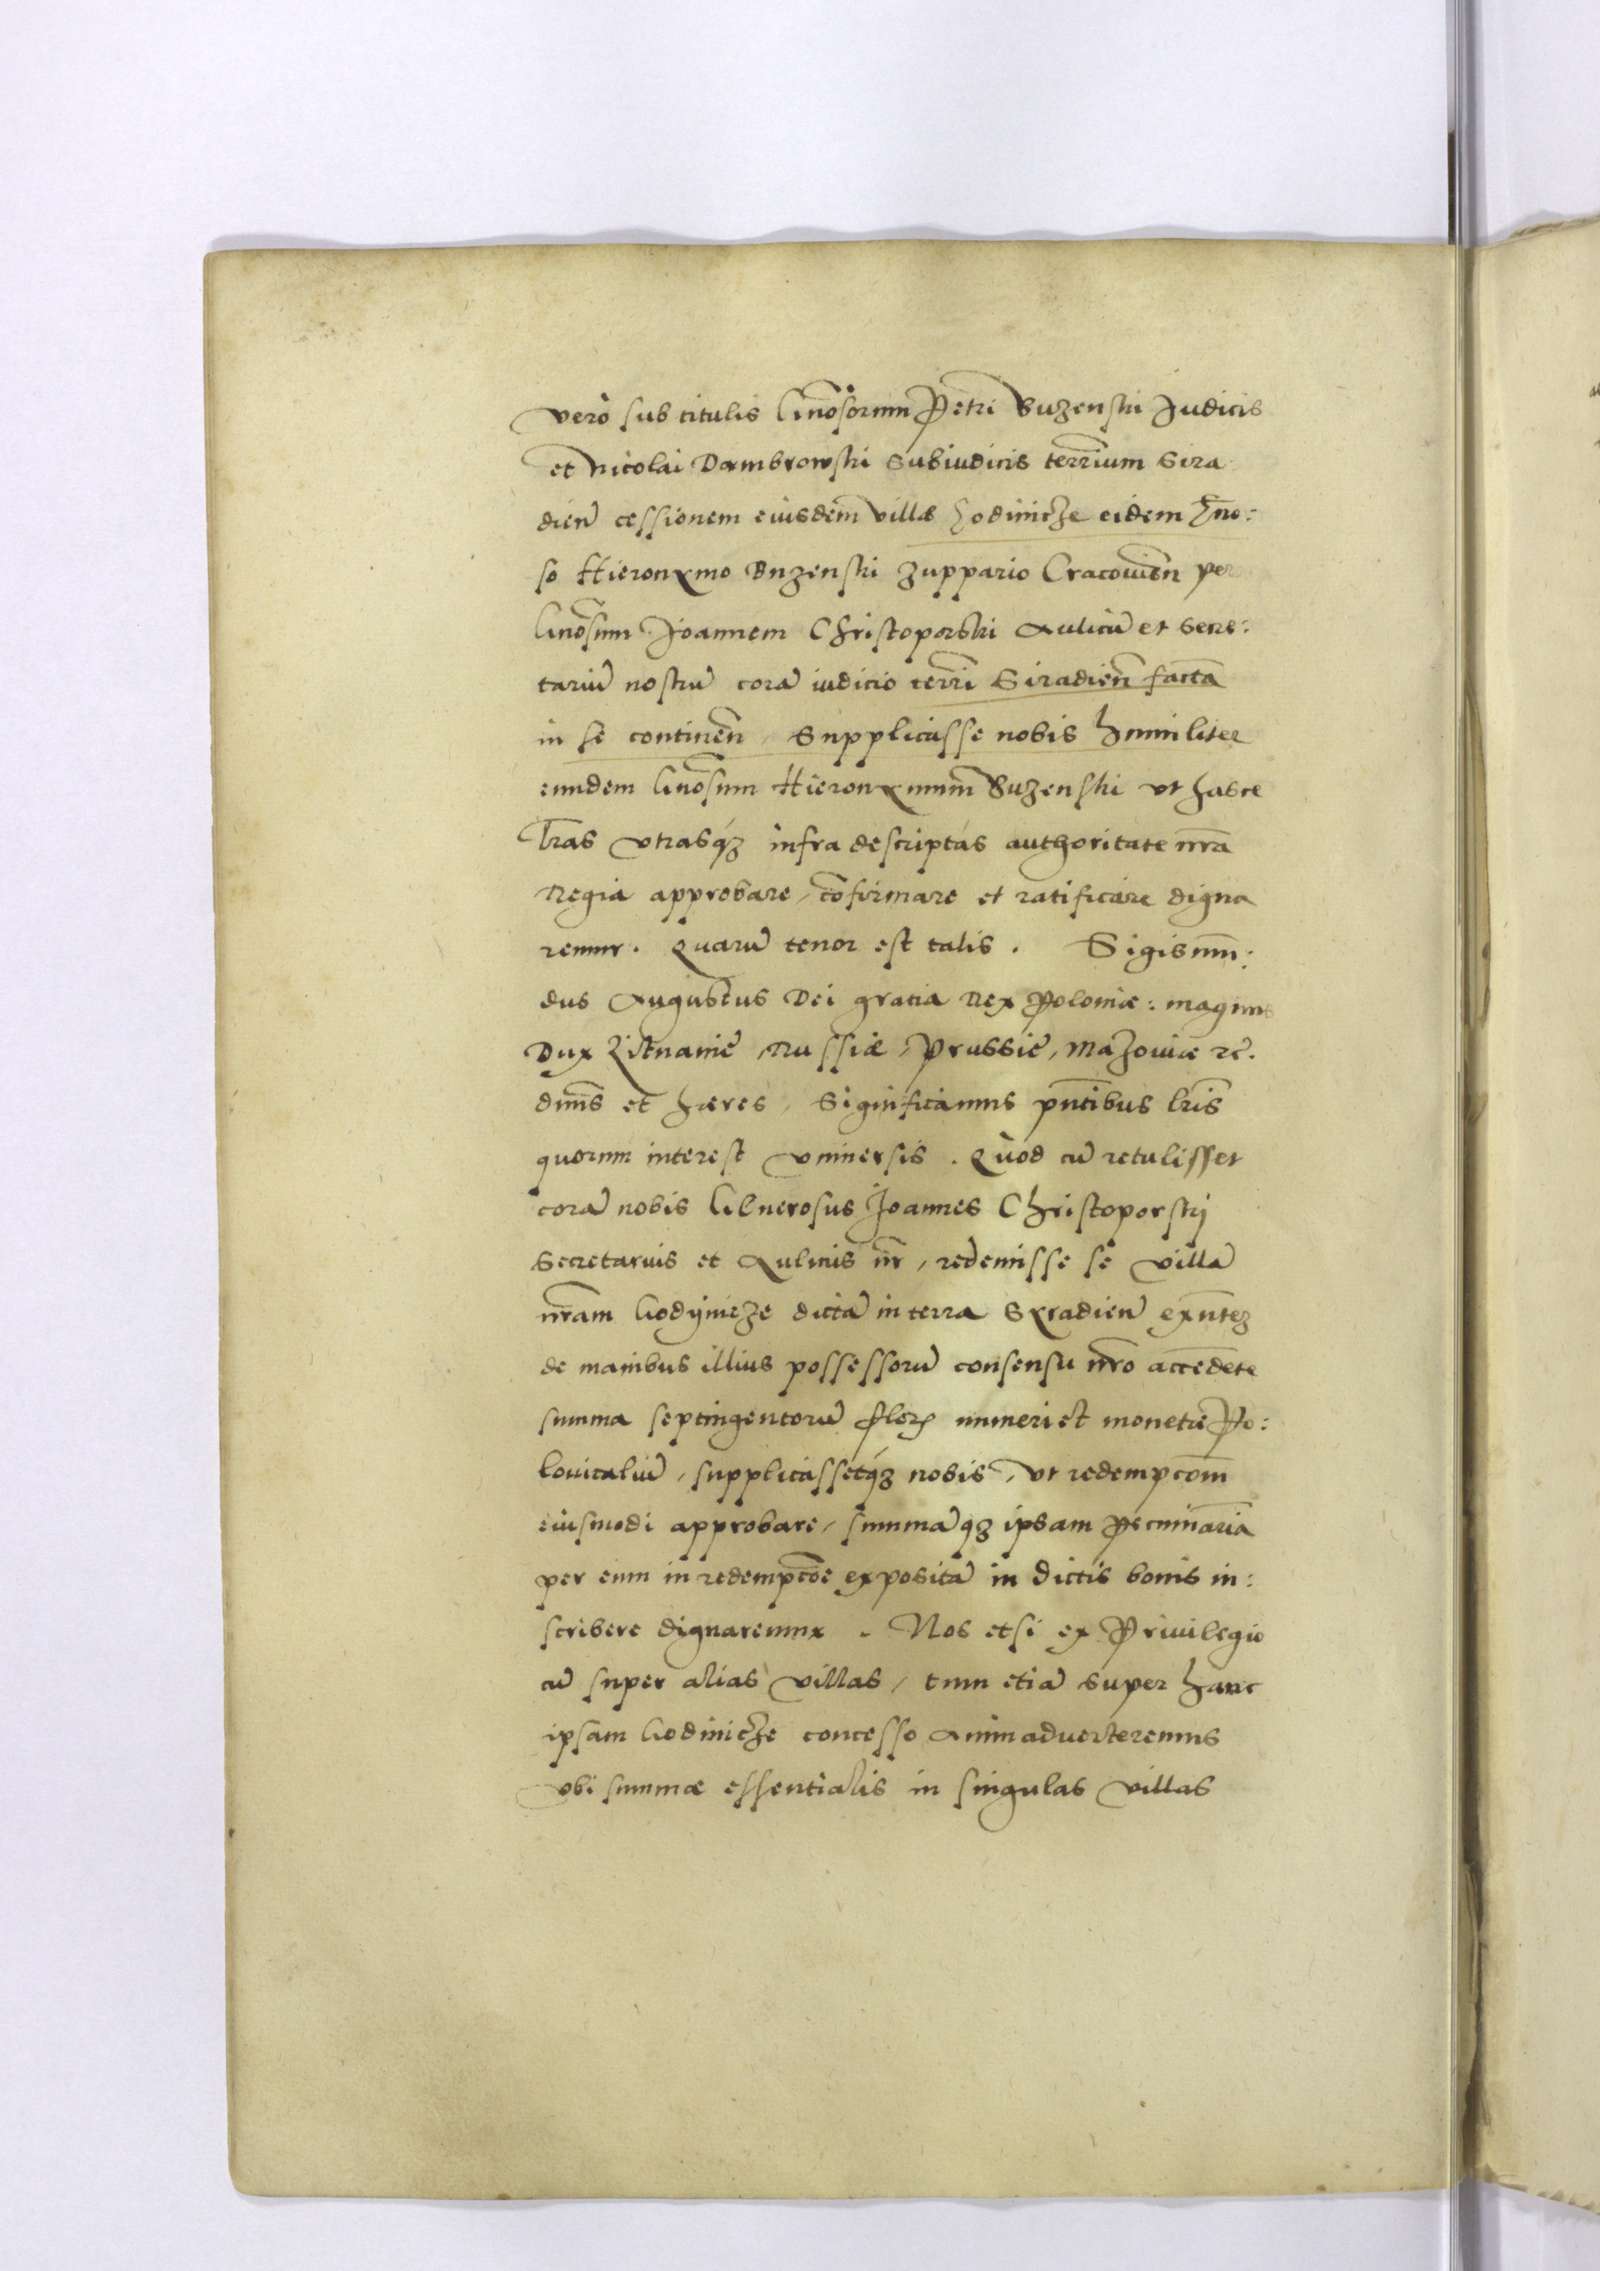 vero sub titulis Gnōsorum Petri Buzenski Judicis
et Nicolai Dambrowski Subiudicis terrarium Sira
dien̄ cessionem eiusdem villæ Godinicze eidem Gno:
so Hieronymo Buzenski Zuppario Cracovien̄ per
Gnōsum Joannem Christoporski Aulicū et Secre:
tariū nostrū corā iudicio terrī Siradien̄ factā
in se continen̄, Supplicasse nobis humiliter
eundem Gnōsum Hieronymum Buzenski vt hasce
lr̄as vtrasq́ʒ infra descriptas authoritate nr̄a
Regia approbare, cōfirmare et ratificare digna
remur. Quarū tenor est talis. Sigismū:
dus Augustus Dei gratia Rex Poloniæ: magnus
Dux Lithuanię, Russiæ, Prussię, Mazouiæ ꝛc̄.
dn̄us et hæres, Significamus pn̄tibus lr̄is
quorum interest vniuersis. Quòd cū retulisset
corā nobis Generosus Joannes Christoporskj
Secretarius et Aulicus nr̄, redemisse se villā
nr̄am Godÿnicze dictā in terra Syradien̄ exn̄teʒ
de manibus illius possessorū consensu nr̄o accedēte
summa septingentorū flor̄ numeri et monetæ Po:
lonicaliū, supplicassetq́ʒ nobis, vt redempcōm̄
eiusmodi approbare, summāqʒ ipsam pecuniariā
per eum in redempcōe expositā in dictis bonis in:
scribere dignaremur. Nos etsi ex Priuilegio
cū super alias villas, tum etiā super hanc
ipsam Godinicze concesso animaduerteremus
vbi summæ essentialis in singulas villas